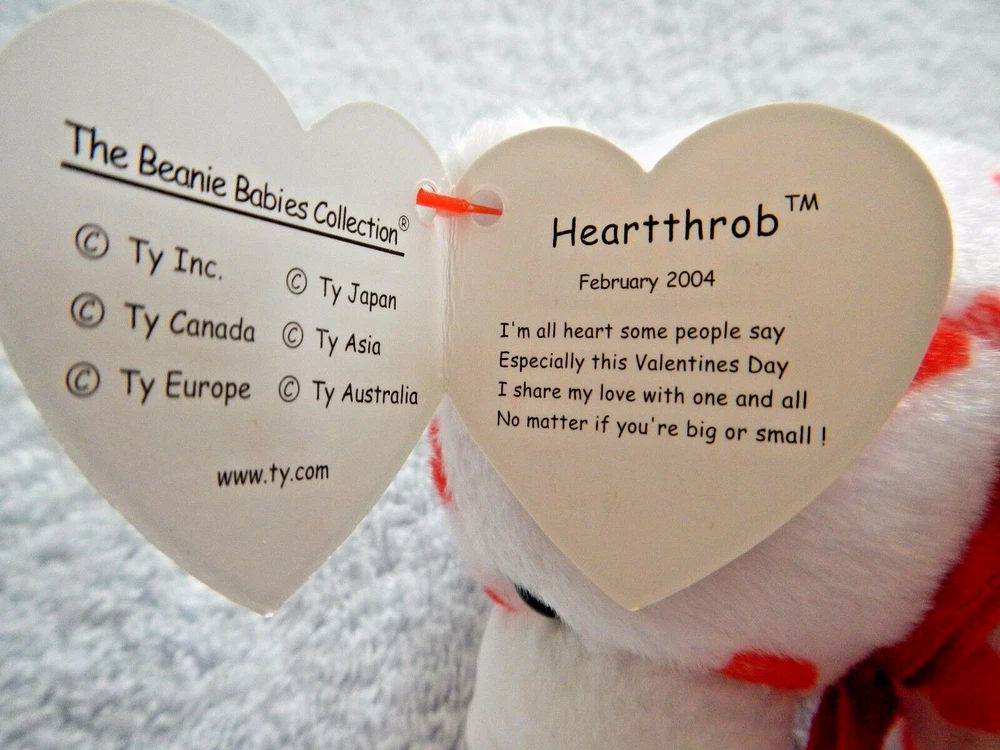 The Beanie Babies Collection®
© Ty Inc.
© Ty Canada
© Ty Europe
© Ty Japan
© Ty Asia
© Ty Australia
www.ty.com
Heartthrob™
February 2004
I'm all heart some people say
Especially this Valentines Day
I share my love with one and all
No matter if you're big or small !